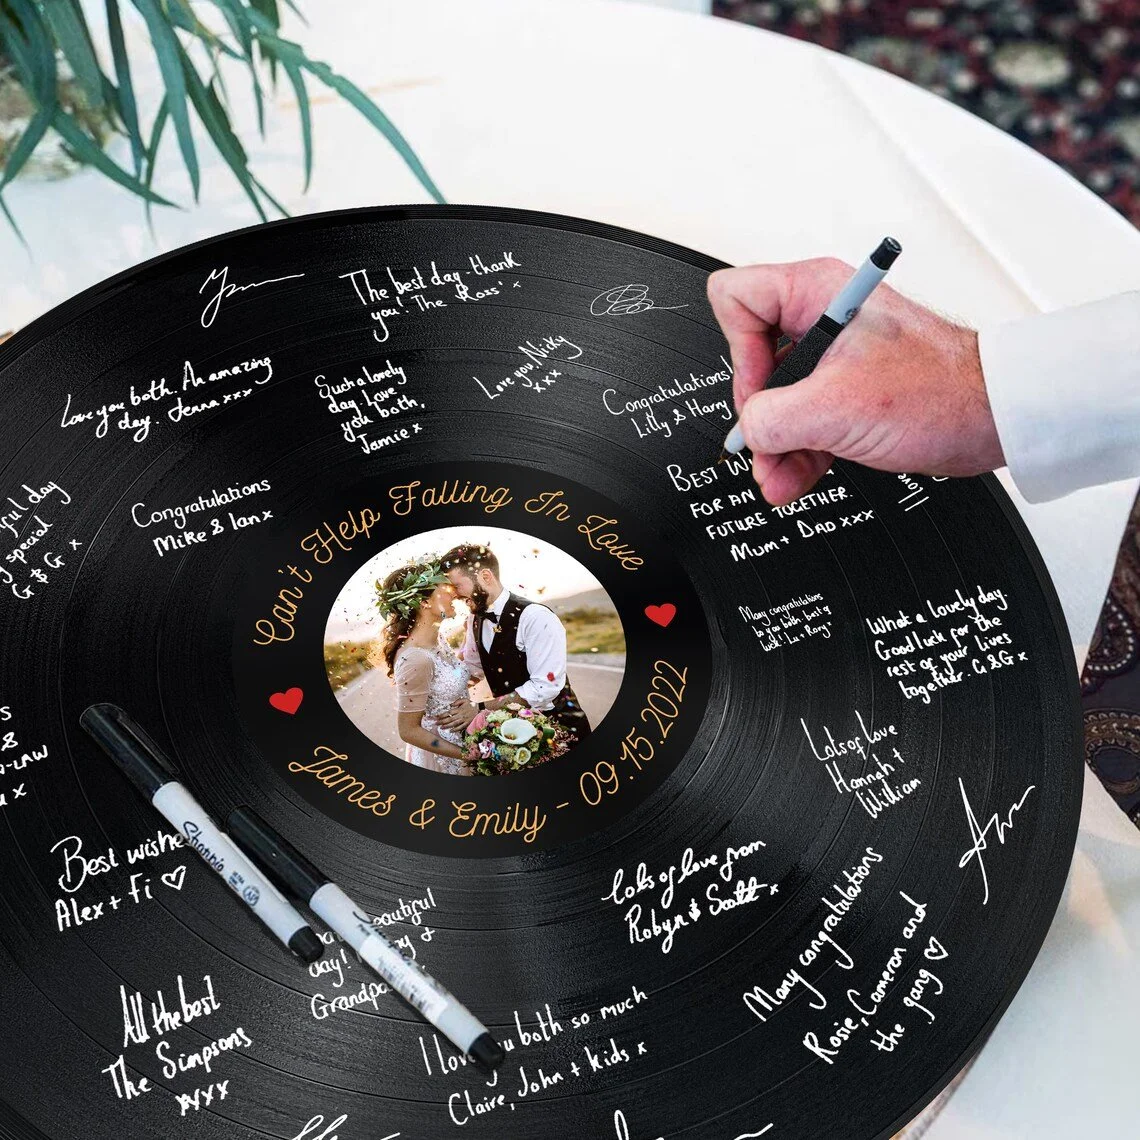 The best day - thank
you! The Ross' x
Love you both. An amazing
day. Jenna xxx
Such a lovely
day. Love
you both,
Jamie x
Love you, Nicky
xxx
Congratulations!
Lilly & Harry
day
special
G & G x
Congratulations
Mike & Ian x
BEST
FOR AN
FUTURE TOGETHER.
MUM + DAD XXX
love
Can't Help Falling In Love
James & Emily - 09.15.2022
Many congratulations
to you both, best of
luck!
What a lovely day.
Good luck for the
rest of your lives
together. G & G x
&
-LAW
x
Lots of love
Hannah +
William
Best wishe
Alex + Fi ♡
Sharpie
eautiful
day!
Grandpa
lots of love from
Robyn & Scott x
Many congratulations
Rosie, Cameron and
the gang ♡
All the best
The Simpsons
xxxx
I love you both so much
Claire, John + kids x